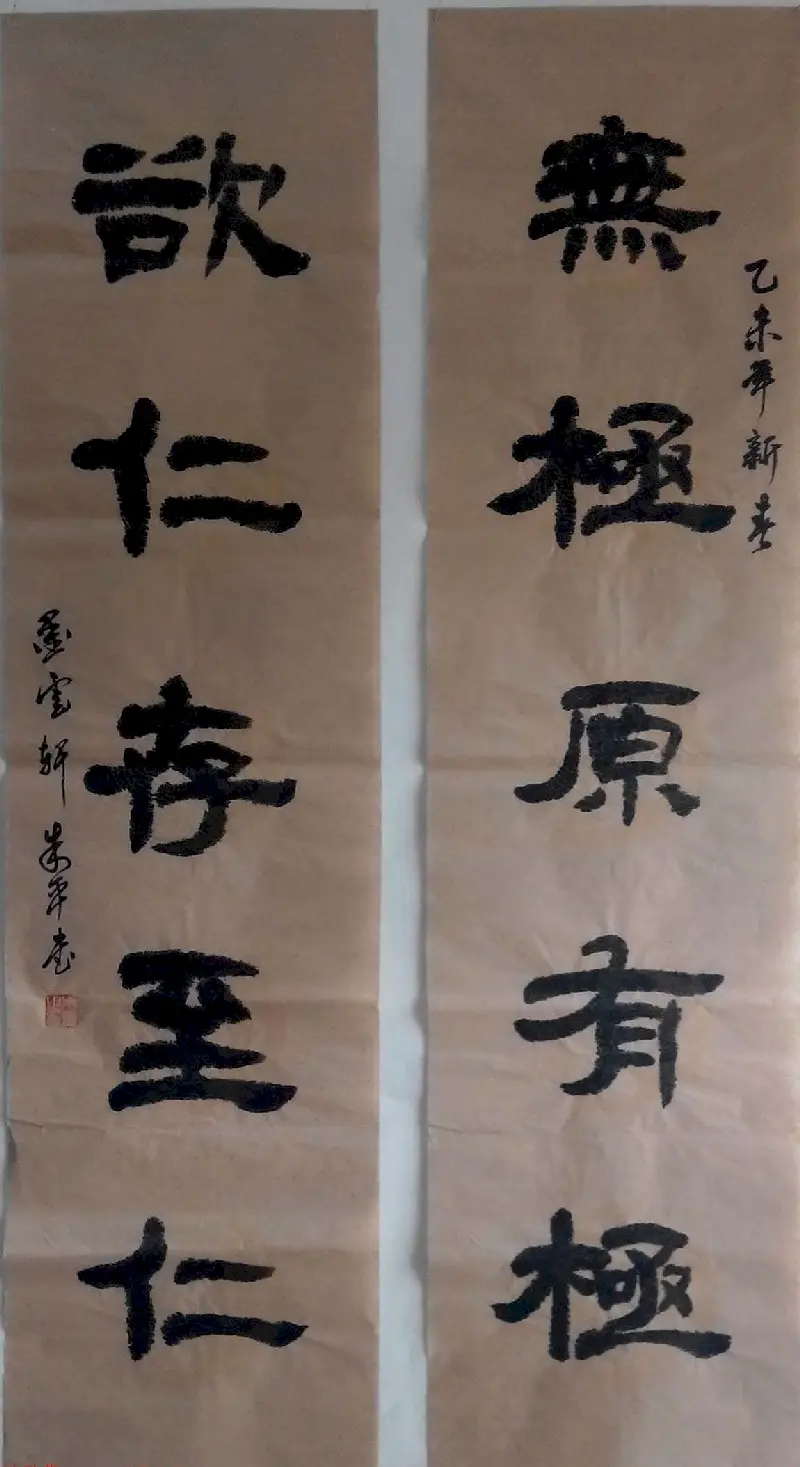 乙未年新春
無極原有極
欲仁存至仁
墨雲軒 朱平書